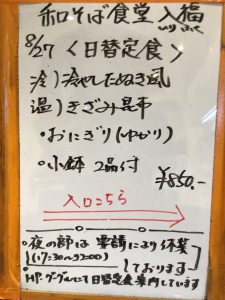 和そば食堂 入福
いり ふく
8/27 〈日替定食〉
冷）冷やしたぬき風
温）きざみ昆布
・おにぎり(ゆかり)
・小鉢 2品付
¥850.-
入口こちら
・夜の部は 要請により休業
(17:30〜22:00)
しております
・HP・グーグルにて日替定食案内しています